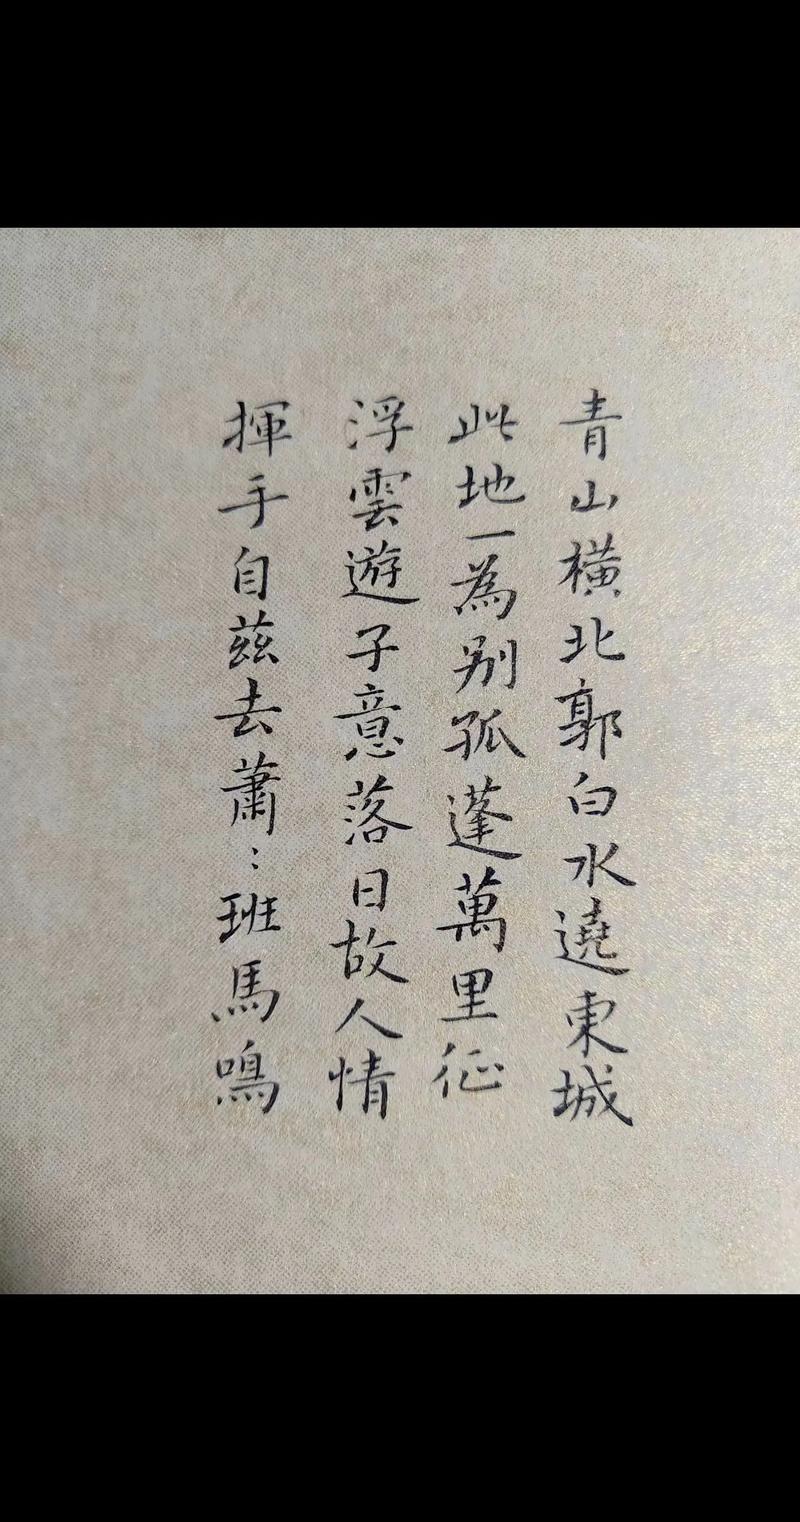 青山橫北郭白水遶東城
此地一為别孤蓬萬里征
浮雲遊子意落日故人情
揮手自茲去蕭〻班馬鳴